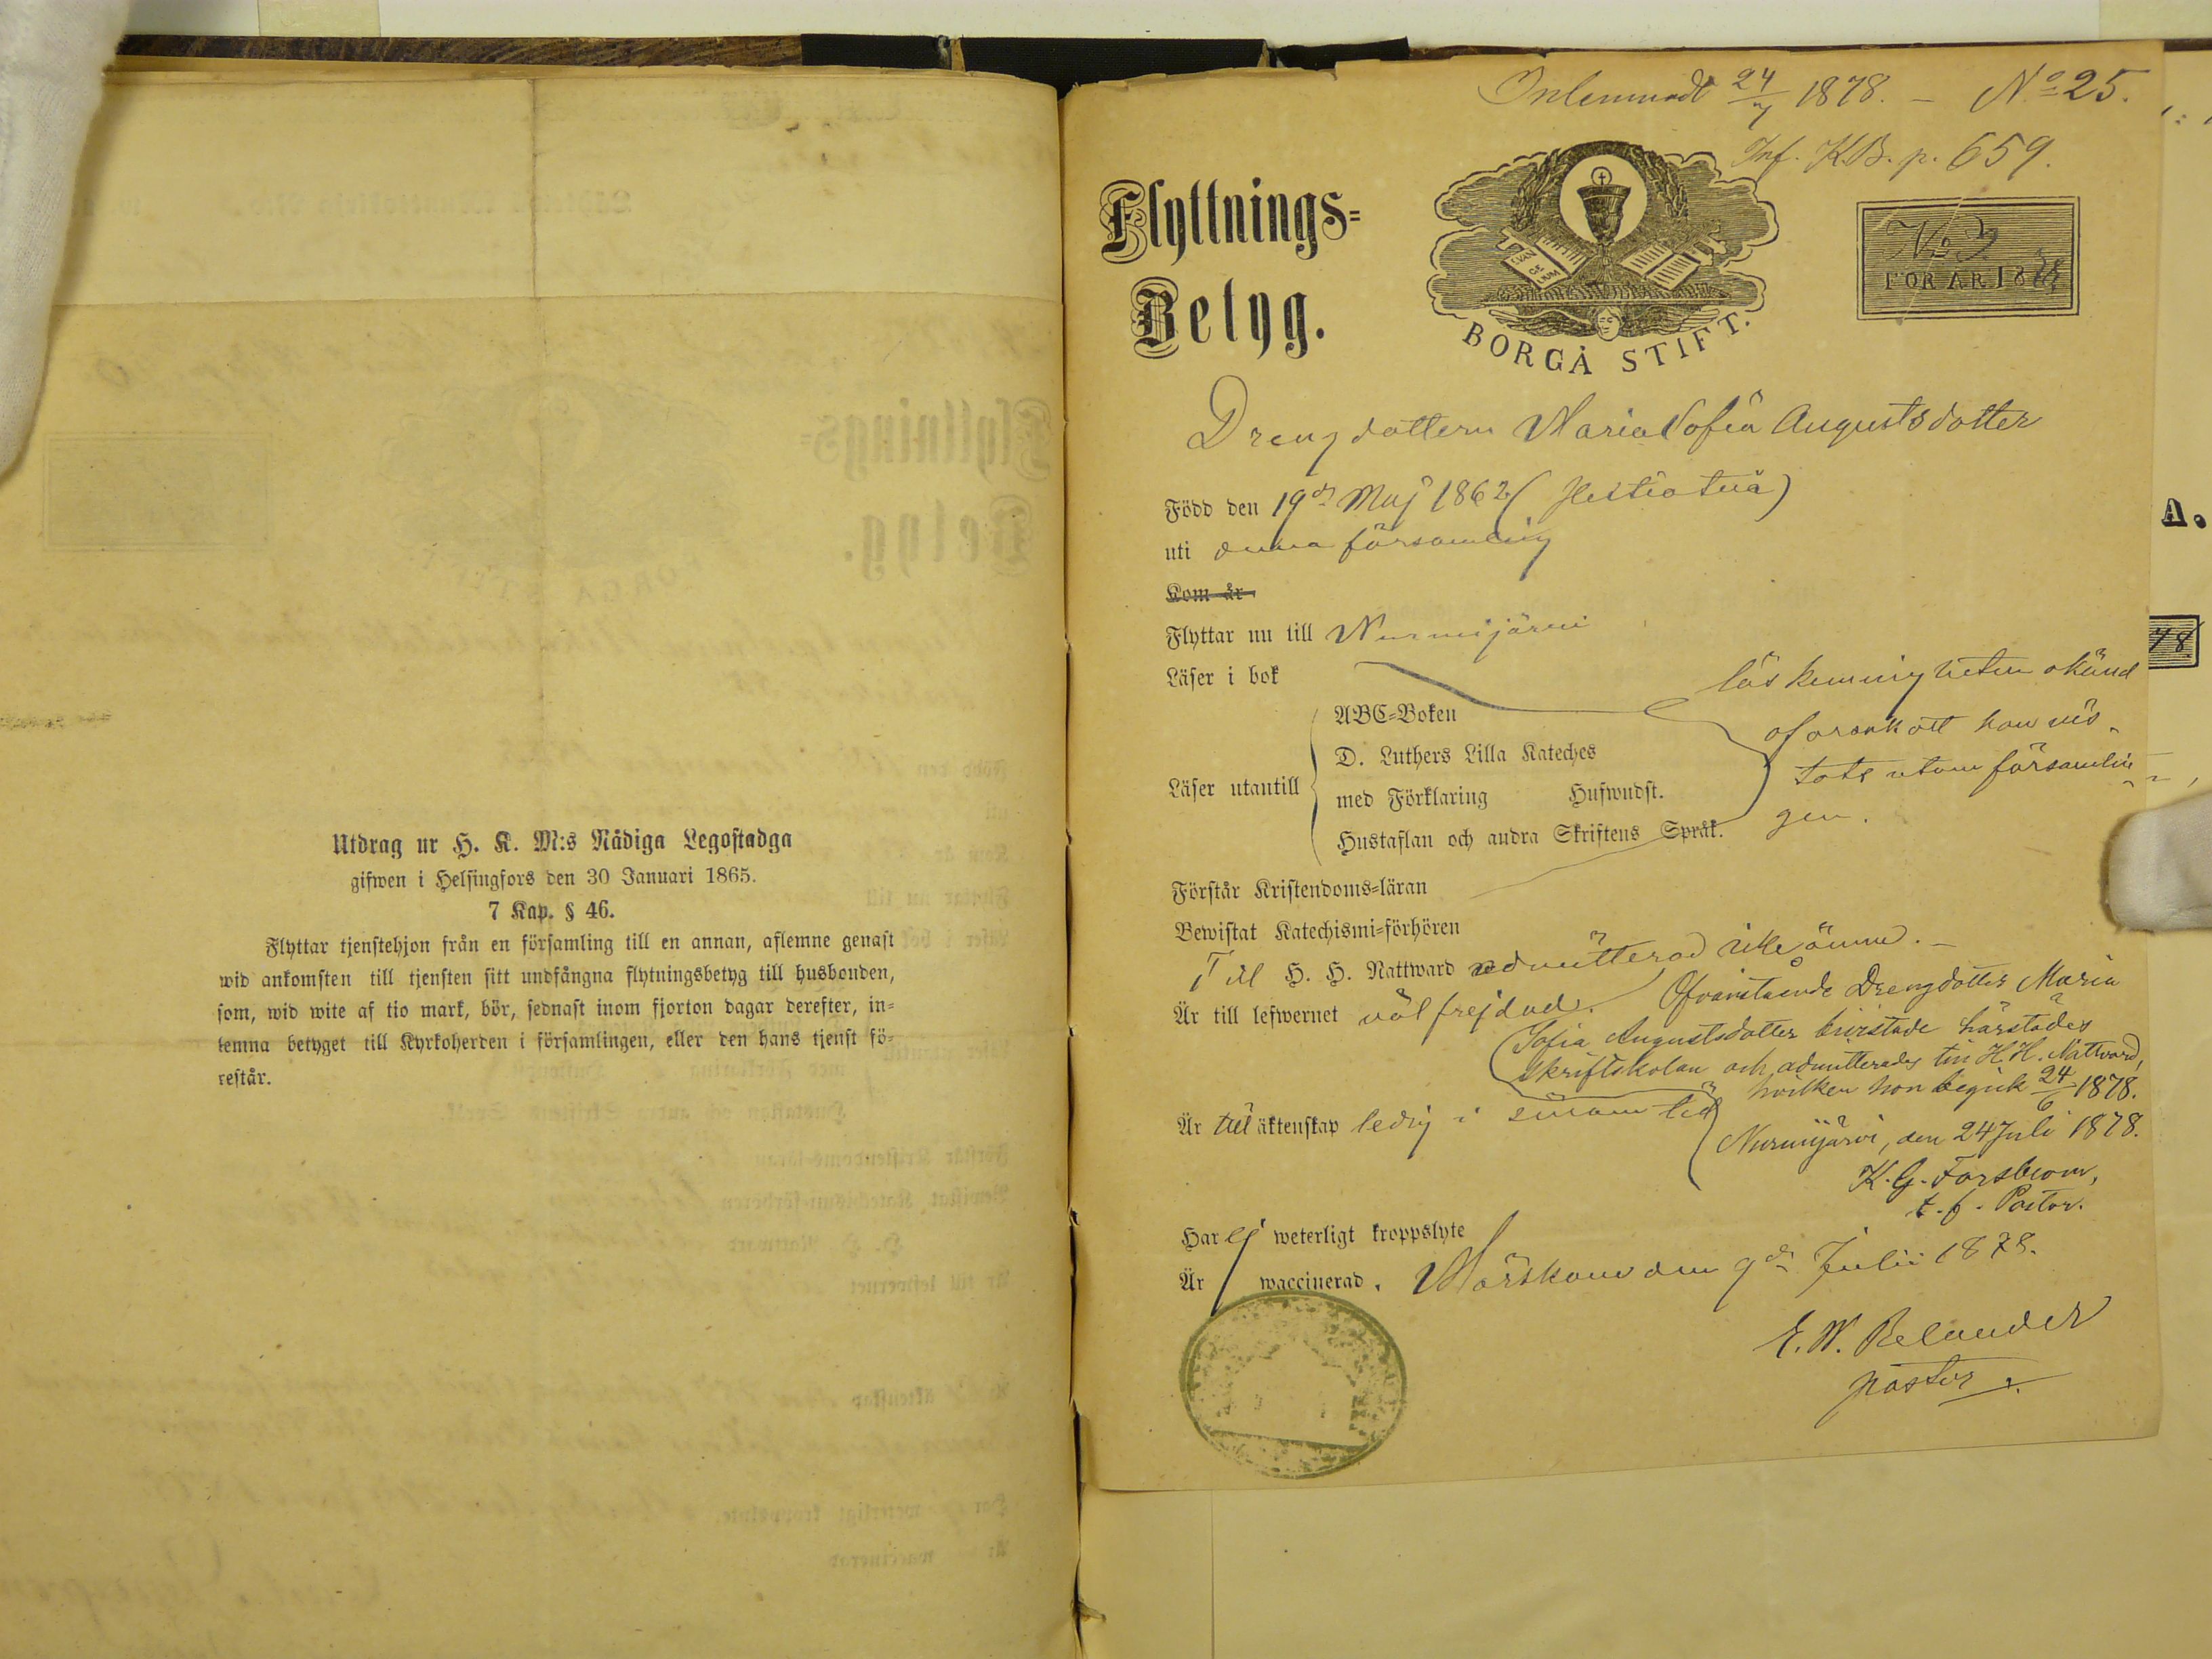 Utdrag ur H. K. M:s Nådiga Legostadga
gifwen i Helsingfors den 30 Januari 1865.
7 Kap. § 46.
Flyttar tjenstehjon från en församling till en annan, aflemne genast
wid ankomsten till tjensten sitt undfångna flytningsbetyg till husbonden,
som, wid wite af tio mark, bör, sednast inom fjorton dagar derefter, in-
lemna betyget till Kyrkoherden i församlingen, eller den hans tjenst fö-
restår.
Inlemnadt 24/7 1878. — No 25.
Inf. K.B. p. 659.
Flyttnings-
Betyg.
EVAN
GE
LIUM
BORGÅ STIFT.
No
FÖR ÅR 18
Drengdottern Maria Sofia Augustsdotter
Född den 19de Maj 1862
uti denna församling
Kom år
Flyttar nu till Nurmijärvi
Läser i bok
Läser utantill
ABC-Boken
D. Luthers Lilla Kateches
med Förklaring Huswudst.
Hustaflan och andra Skriftens Språk.
läskunnigheten okänd
aforsak att hon vis-
tats utom församlin-
gen.
Förstår Kristendoms-läran
Bewistat Katechismi-förhören
Till H. H. Nattward admitterad icke ännu. —
Är till lefwernet väl frejdad.
Ofvanstående Drengdotter Maria
Sofia Augustsdotter bivistade härstädes
skriftskolan och admitterades till H. H. Nattvard,
hvilken hon begick 24/6 1878.
Nurmijärvi, den 24 Juli 1878.
K. G. Forsblom,
t. f. Pastor.
Är till äktenskap ledig i
Har ej weterligt kroppslyte
Är waccinerad. Mörskom den 9de Julii 1878.
E. W. Relander
pastor.
A.
78